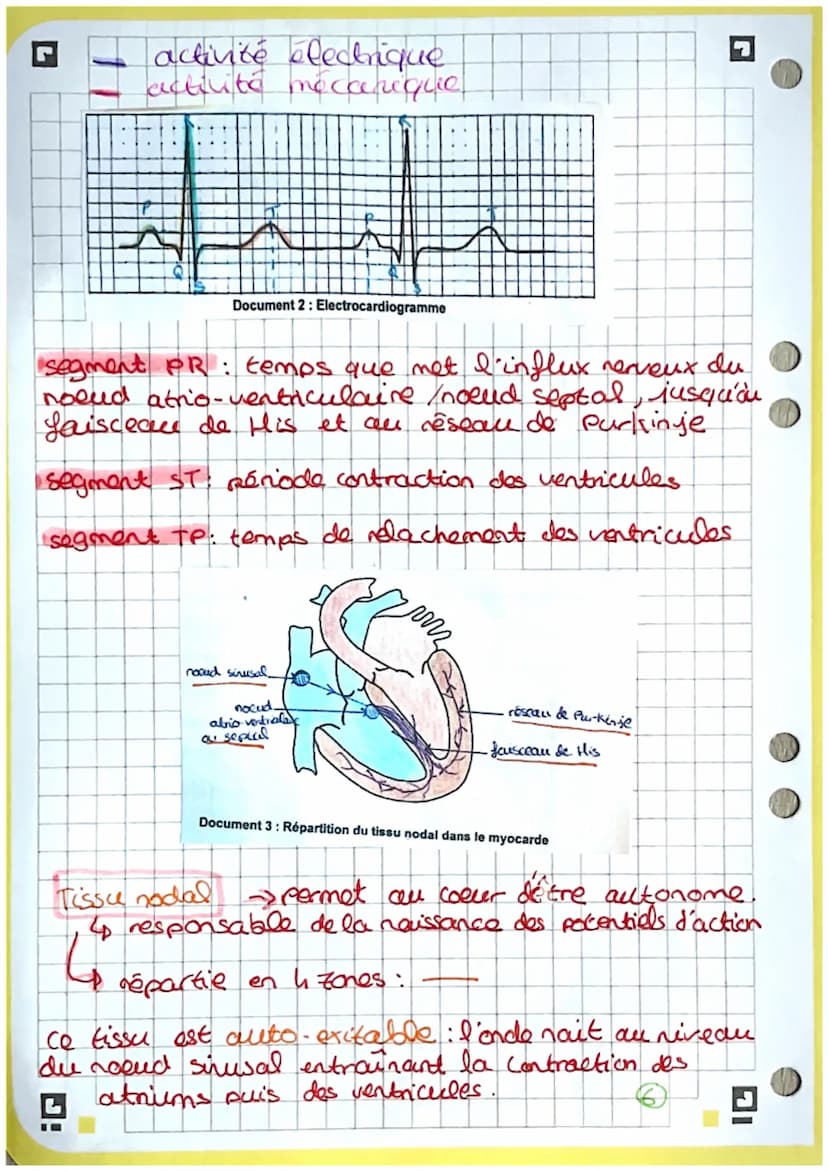 activité électrique
activité mécanique
P
R
T
P
R
T
Q
S
Q
S
Document 2 : Electrocardiogramme
segment PR : temps que met l'influx nerveux du
noeud atrio-ventriculaire /noeud septal, jusqu'au
faisceau de His et au réseau de Purkinje
segment ST : période contraction des ventricules
segment TP : temps de relachement des ventricules
noeud sinusal
noeud
ou septal
réseau de Purkinje
faisceau de His
Document 3 : Répartition du tissu nodal dans le myocarde
Tissu nodal → permet au coeur d'être autonome.
↳ responsable de la naissance des potentiels d'action
↳ répartie en 4 zones : —
ce tissu est auto-exitable : l'onde nait au niveau
du noeud sinusal entraînant la contraction des
atriums puis des ventricules.
6